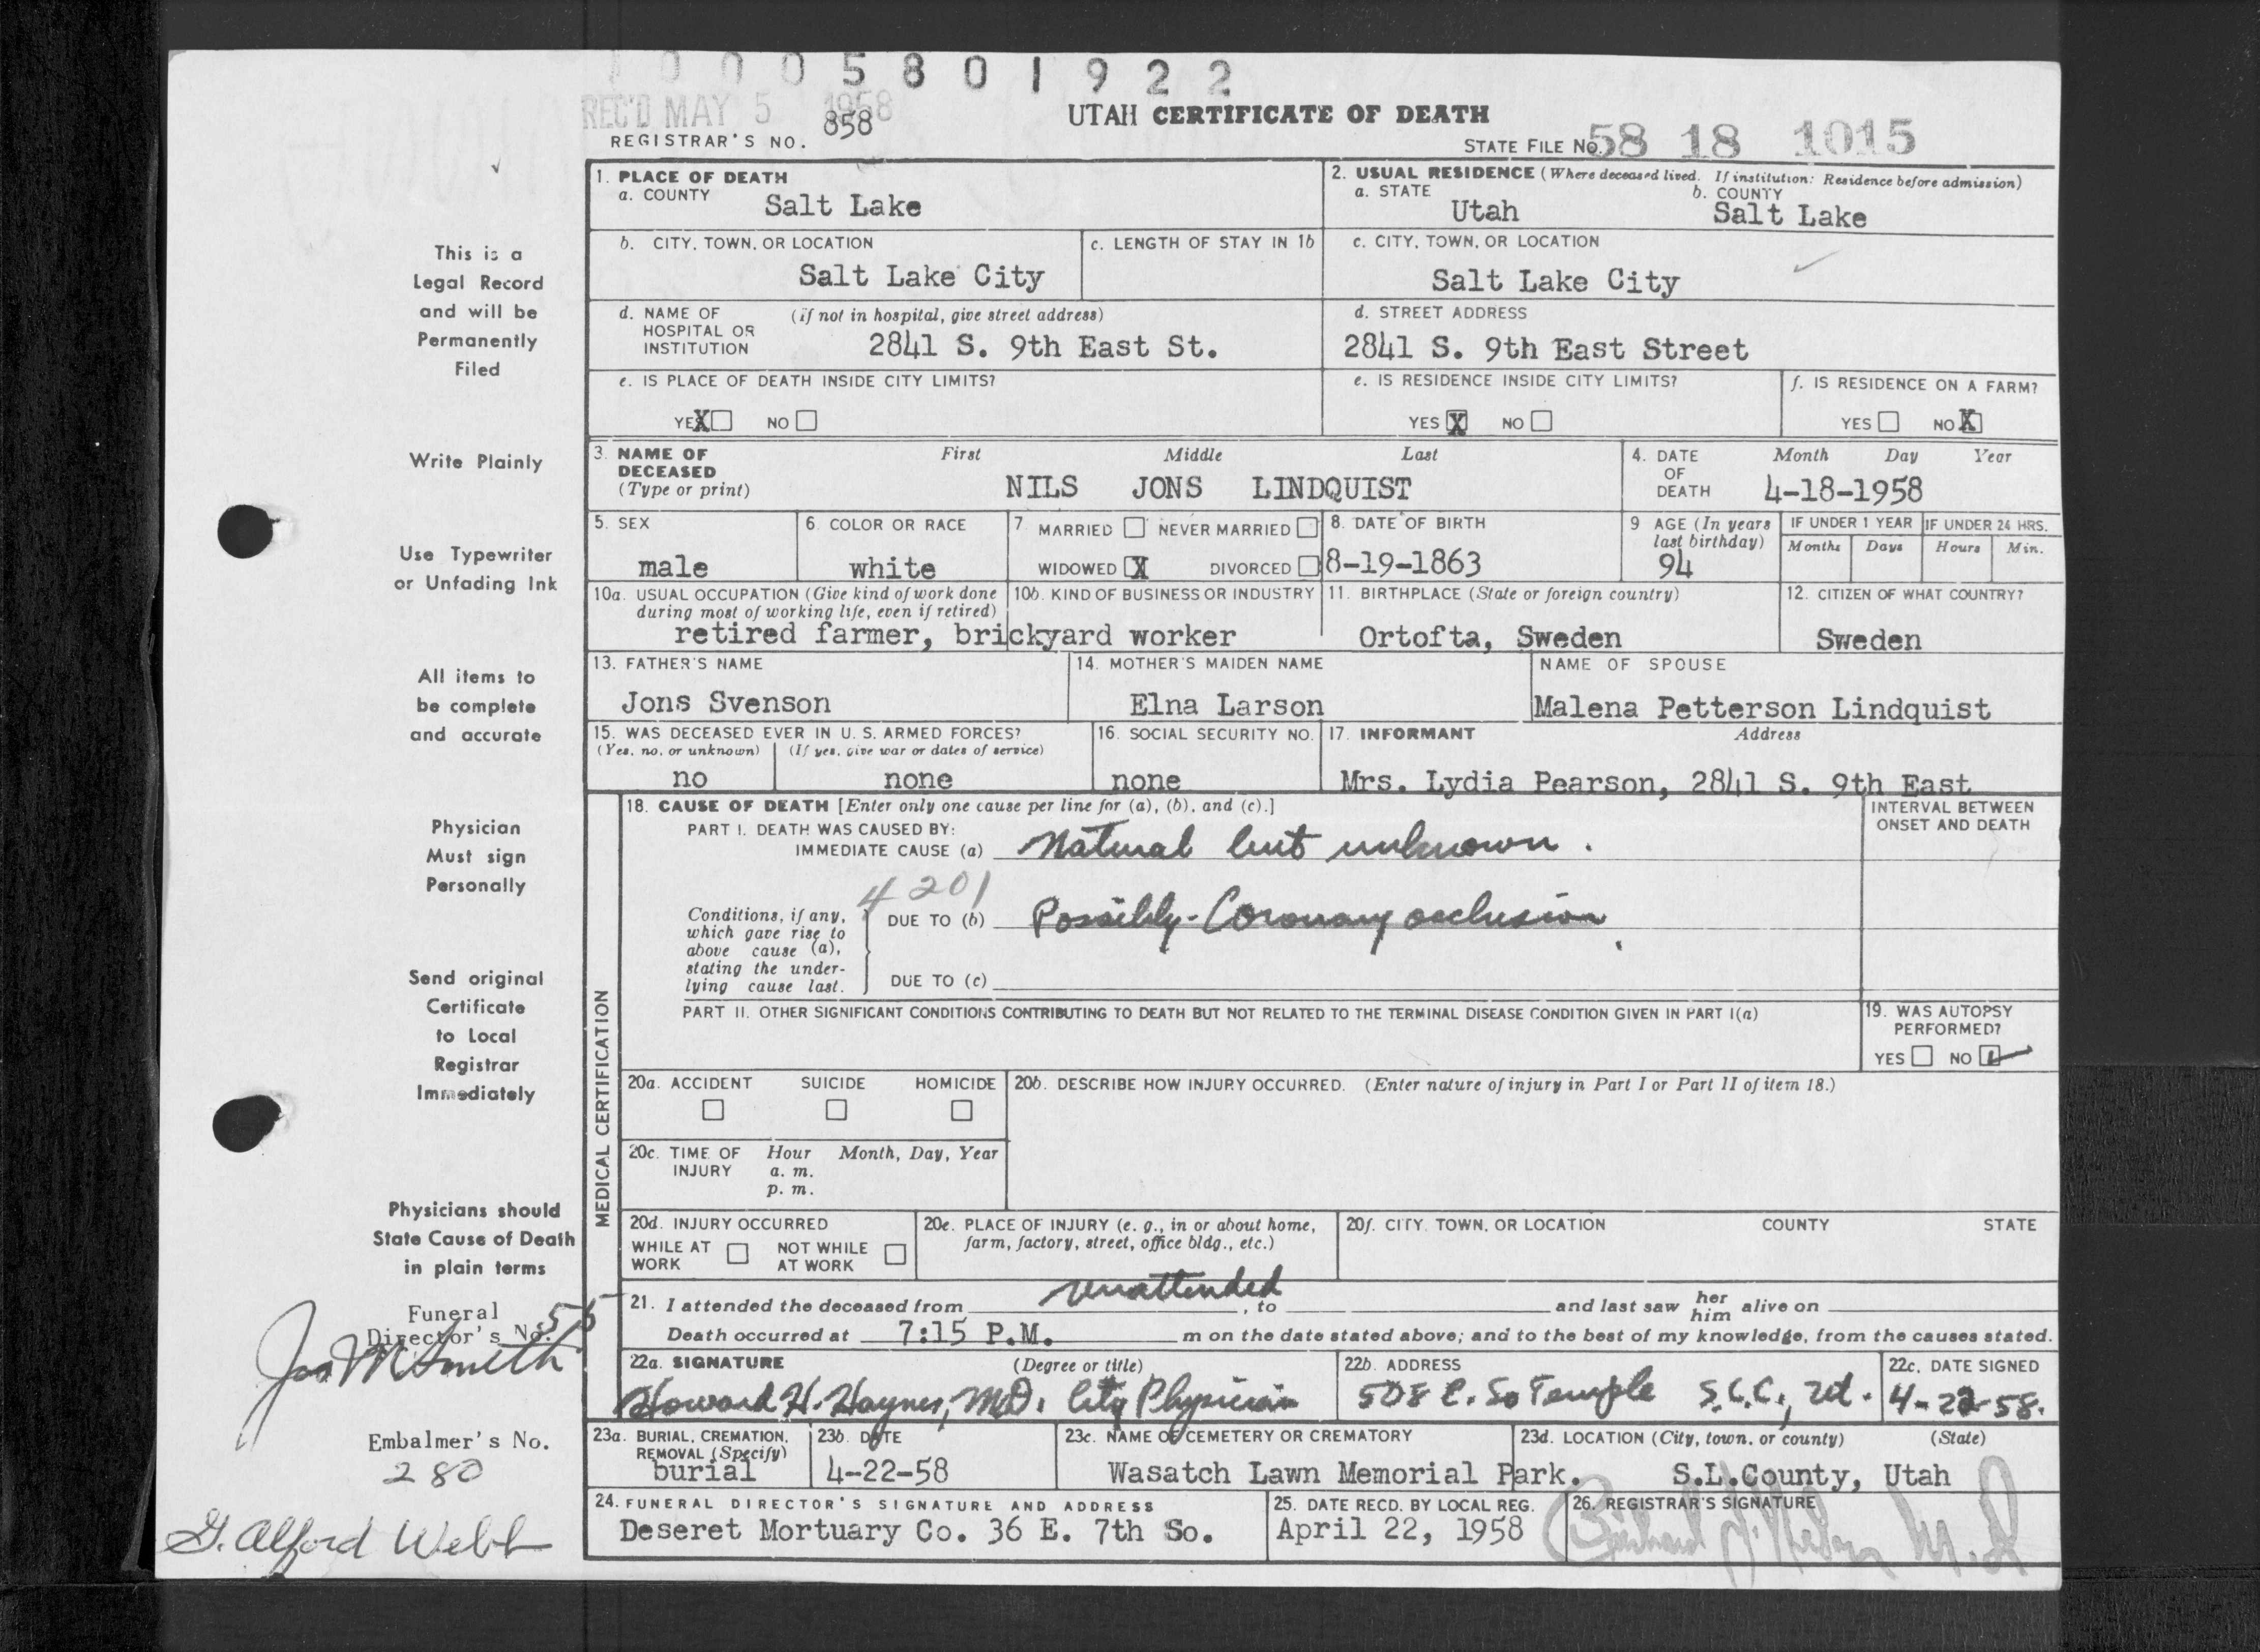 1 0 0 0 5 8 0 1 9 2 2
REC'D MAY 5 1958
REGISTRAR'S NO. 858
UTAH CERTIFICATE OF DEATH
STATE FILE NO. 58 18 1015
1. PLACE OF DEATH
a. COUNTY Salt Lake
2. USUAL RESIDENCE (Where deceased lived. If institution: Residence before admission)
a. STATE Utah b. COUNTY Salt Lake
b. CITY, TOWN, OR LOCATION Salt Lake City
c. LENGTH OF STAY IN 1b
c. CITY, TOWN, OR LOCATION Salt Lake City
d. NAME OF HOSPITAL OR INSTITUTION (if not in hospital, give street address) 2841 S. 9th East St.
d. STREET ADDRESS 2841 S. 9th East Street
e. IS PLACE OF DEATH INSIDE CITY LIMITS?
YES X NO
e. IS RESIDENCE INSIDE CITY LIMITS?
YES X NO
f. IS RESIDENCE ON A FARM?
YES NO X
3. NAME OF DECEASED (Type or print) First Middle Last
NILS JONS LINDQUIST
4. DATE OF DEATH Month Day Year
4-18-1958
5. SEX male
6. COLOR OR RACE white
7. MARRIED NEVER MARRIED
WIDOWED X DIVORCED
8. DATE OF BIRTH 8-19-1863
9 AGE (In years last birthday) 94
IF UNDER 1 YEAR Months Days
IF UNDER 24 HRS. Hours Min.
10a. USUAL OCCUPATION (Give kind of work done during most of working life, even if retired)
10b. KIND OF BUSINESS OR INDUSTRY
retired farmer, brickyard worker
11. BIRTHPLACE (State or foreign country) Ortofta, Sweden
12. CITIZEN OF WHAT COUNTRY? Sweden
13. FATHER'S NAME Jons Svenson
14. MOTHER'S MAIDEN NAME Elna Larson
NAME OF SPOUSE Malena Petterson Lindquist
15. WAS DECEASED EVER IN U. S. ARMED FORCES?
(Yes, no, or unknown) (If yes, give war or dates of service)
no none
16. SOCIAL SECURITY NO. none
17. INFORMANT Address
Mrs. Lydia Pearson, 2841 S. 9th East
MEDICAL CERTIFICATION
18. CAUSE OF DEATH [Enter only one cause per line for (a), (b), and (c).]
INTERVAL BETWEEN ONSET AND DEATH
PART I. DEATH WAS CAUSED BY:
IMMEDIATE CAUSE (a) Natural but unknown.
4201
Conditions, if any, which gave rise to above cause (a), stating the underlying cause last.
DUE TO (b) Possibly - Coronary occlusion
DUE TO (c)
PART II. OTHER SIGNIFICANT CONDITIONS CONTRIBUTING TO DEATH BUT NOT RELATED TO THE TERMINAL DISEASE CONDITION GIVEN IN PART I(a)
19. WAS AUTOPSY PERFORMED?
YES NO
20a. ACCIDENT SUICIDE HOMICIDE
20b. DESCRIBE HOW INJURY OCCURRED. (Enter nature of injury in Part I or Part II of item 18.)
20c. TIME OF INJURY Hour Month, Day, Year
a. m.
p. m.
20d. INJURY OCCURRED
WHILE AT WORK NOT WHILE AT WORK
20e. PLACE OF INJURY (e. g., in or about home, farm, factory, street, office bldg., etc.)
20f. CITY, TOWN, OR LOCATION COUNTY STATE
21. I attended the deceased from unattended, to and last saw her him alive on
Death occurred at 7:15 P.M. m on the date stated above; and to the best of my knowledge, from the causes stated.
22a. SIGNATURE (Degree or title)
Howard H. Haynes, M.D. City Physician
22b. ADDRESS
508 E. So Temple S.L.C., Ut.
22c. DATE SIGNED
4-22-58.
23a. BURIAL, CREMATION, REMOVAL (Specify) burial
23b. DATE 4-22-58
23c. NAME OF CEMETERY OR CREMATORY
Wasatch Lawn Memorial Park.
23d. LOCATION (City, town, or county) (State)
S.L.County, Utah
24. FUNERAL DIRECTOR'S SIGNATURE AND ADDRESS
Deseret Mortuary Co. 36 E. 7th So.
25. DATE RECD. BY LOCAL REG.
April 22, 1958
26. REGISTRAR'S SIGNATURE
This is a
Legal Record
and will be
Permanently
Filed
Write Plainly
Use Typewriter
or Unfading Ink
All items to
be complete
and accurate
Physician
Must sign
Personally
Send original
Certificate
to Local
Registrar
Immediately
Physicians should
State Cause of Death
in plain terms
Funeral
Director's No. 55
Jos M Smith
Embalmer's No.
280
G. Alford Webb